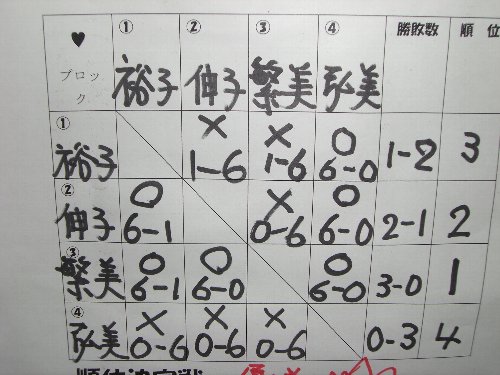 ① ② ③ ④ 勝敗数 順 位
♥
ブロック 裕子 伸子 繁美 弘美
① 裕子 × 1-6 × 1-6 ○ 6-0 1-2 3
② 伸子 ○ 6-1 × 0-6 ○ 6-0 2-1 2
③ 繁美 ○ 6-1 ○ 6-0 ○ 6-0 3-0 1
④ 弘美 × 0-6 × 0-6 × 0-6 0-3 4
順位決定戦